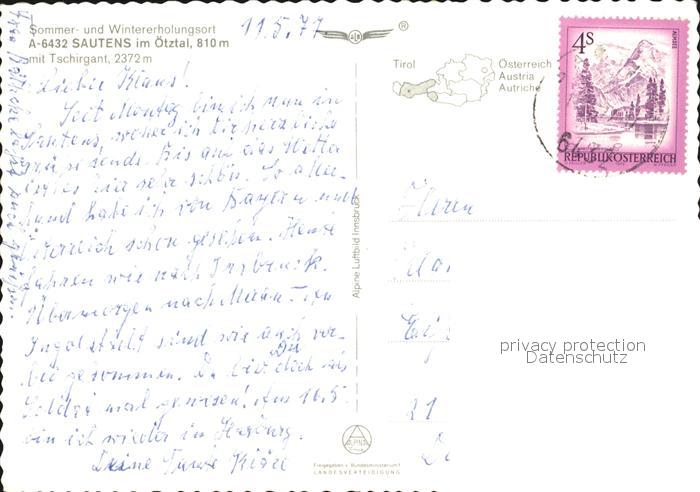 Sommer- und Wintererholungsort
A-6432 SAUTENS im Ötztal, 810 m
mit Tschirgant, 2372 m
11.5.77
®
Tirol
Österreich
Austria
Autriche
4S
ALMSEE
REPUBLIK ÖSTERREICH
Lieber Klaus!
Seit Montag bin ich nun in
Sautens, woher ich Dir herzliche
Grüße sende. Bis auf das Wetter
ist es hier sehr schön. So aller-
hand habe ich von Bayern und
Österreich schon gesehen. Heute
fahren wir nach Innsbruck.
Übermorgen nach Meran. In
Ingolstadt sind wir auch vor-
bei gekommen. Da bist Du doch als
Soldat mal gewesen! Am 16.5.
bin ich wieder in Hamburg.
Deine Tante
Herrn
21
Alpine Luftbild Innsbruck
ALPINE
Freigegeben v. Bundesministerium f.
LANDESVERTEIDIGUNG
privacy protection
Datenschutz